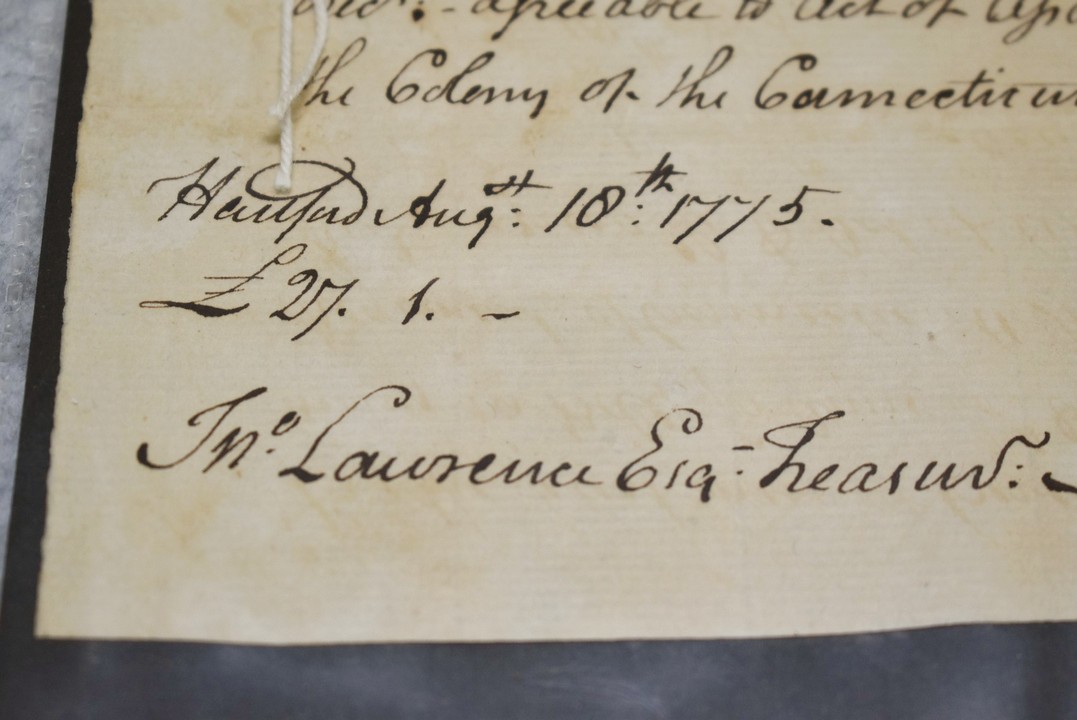 agreeable to Act of
the Colony of the Connecticut
Hartford Augst: 18th: 1775.
£27. 1. -
Jno. Lawrence Esqr Treasur: